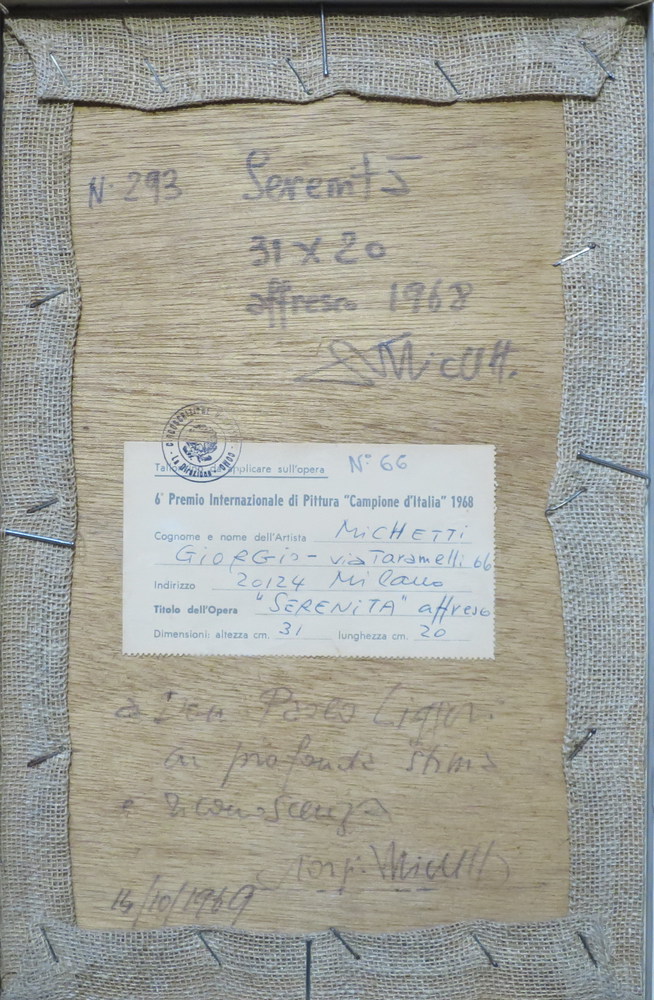 N. 293 Serenità
31 x 20
affresco 1968
GMichetti
La Direzione
Tagliando da applicare sull'opera N° 66
6° Premio Internazionale di Pittura "Campione d'Italia" 1968
Cognome e nome dell'Artista MiCHETTi
GiORGio - via Taramelli 66
Indirizzo 20124 Milano
Titolo dell'Opera "SERENiTA" affresco
Dimensioni: altezza cm. 31 lunghezza cm. 20
a Don Paolo Liggeri
con profonda stima
e riconoscenza
Giorgio Michetti
14/10/1969